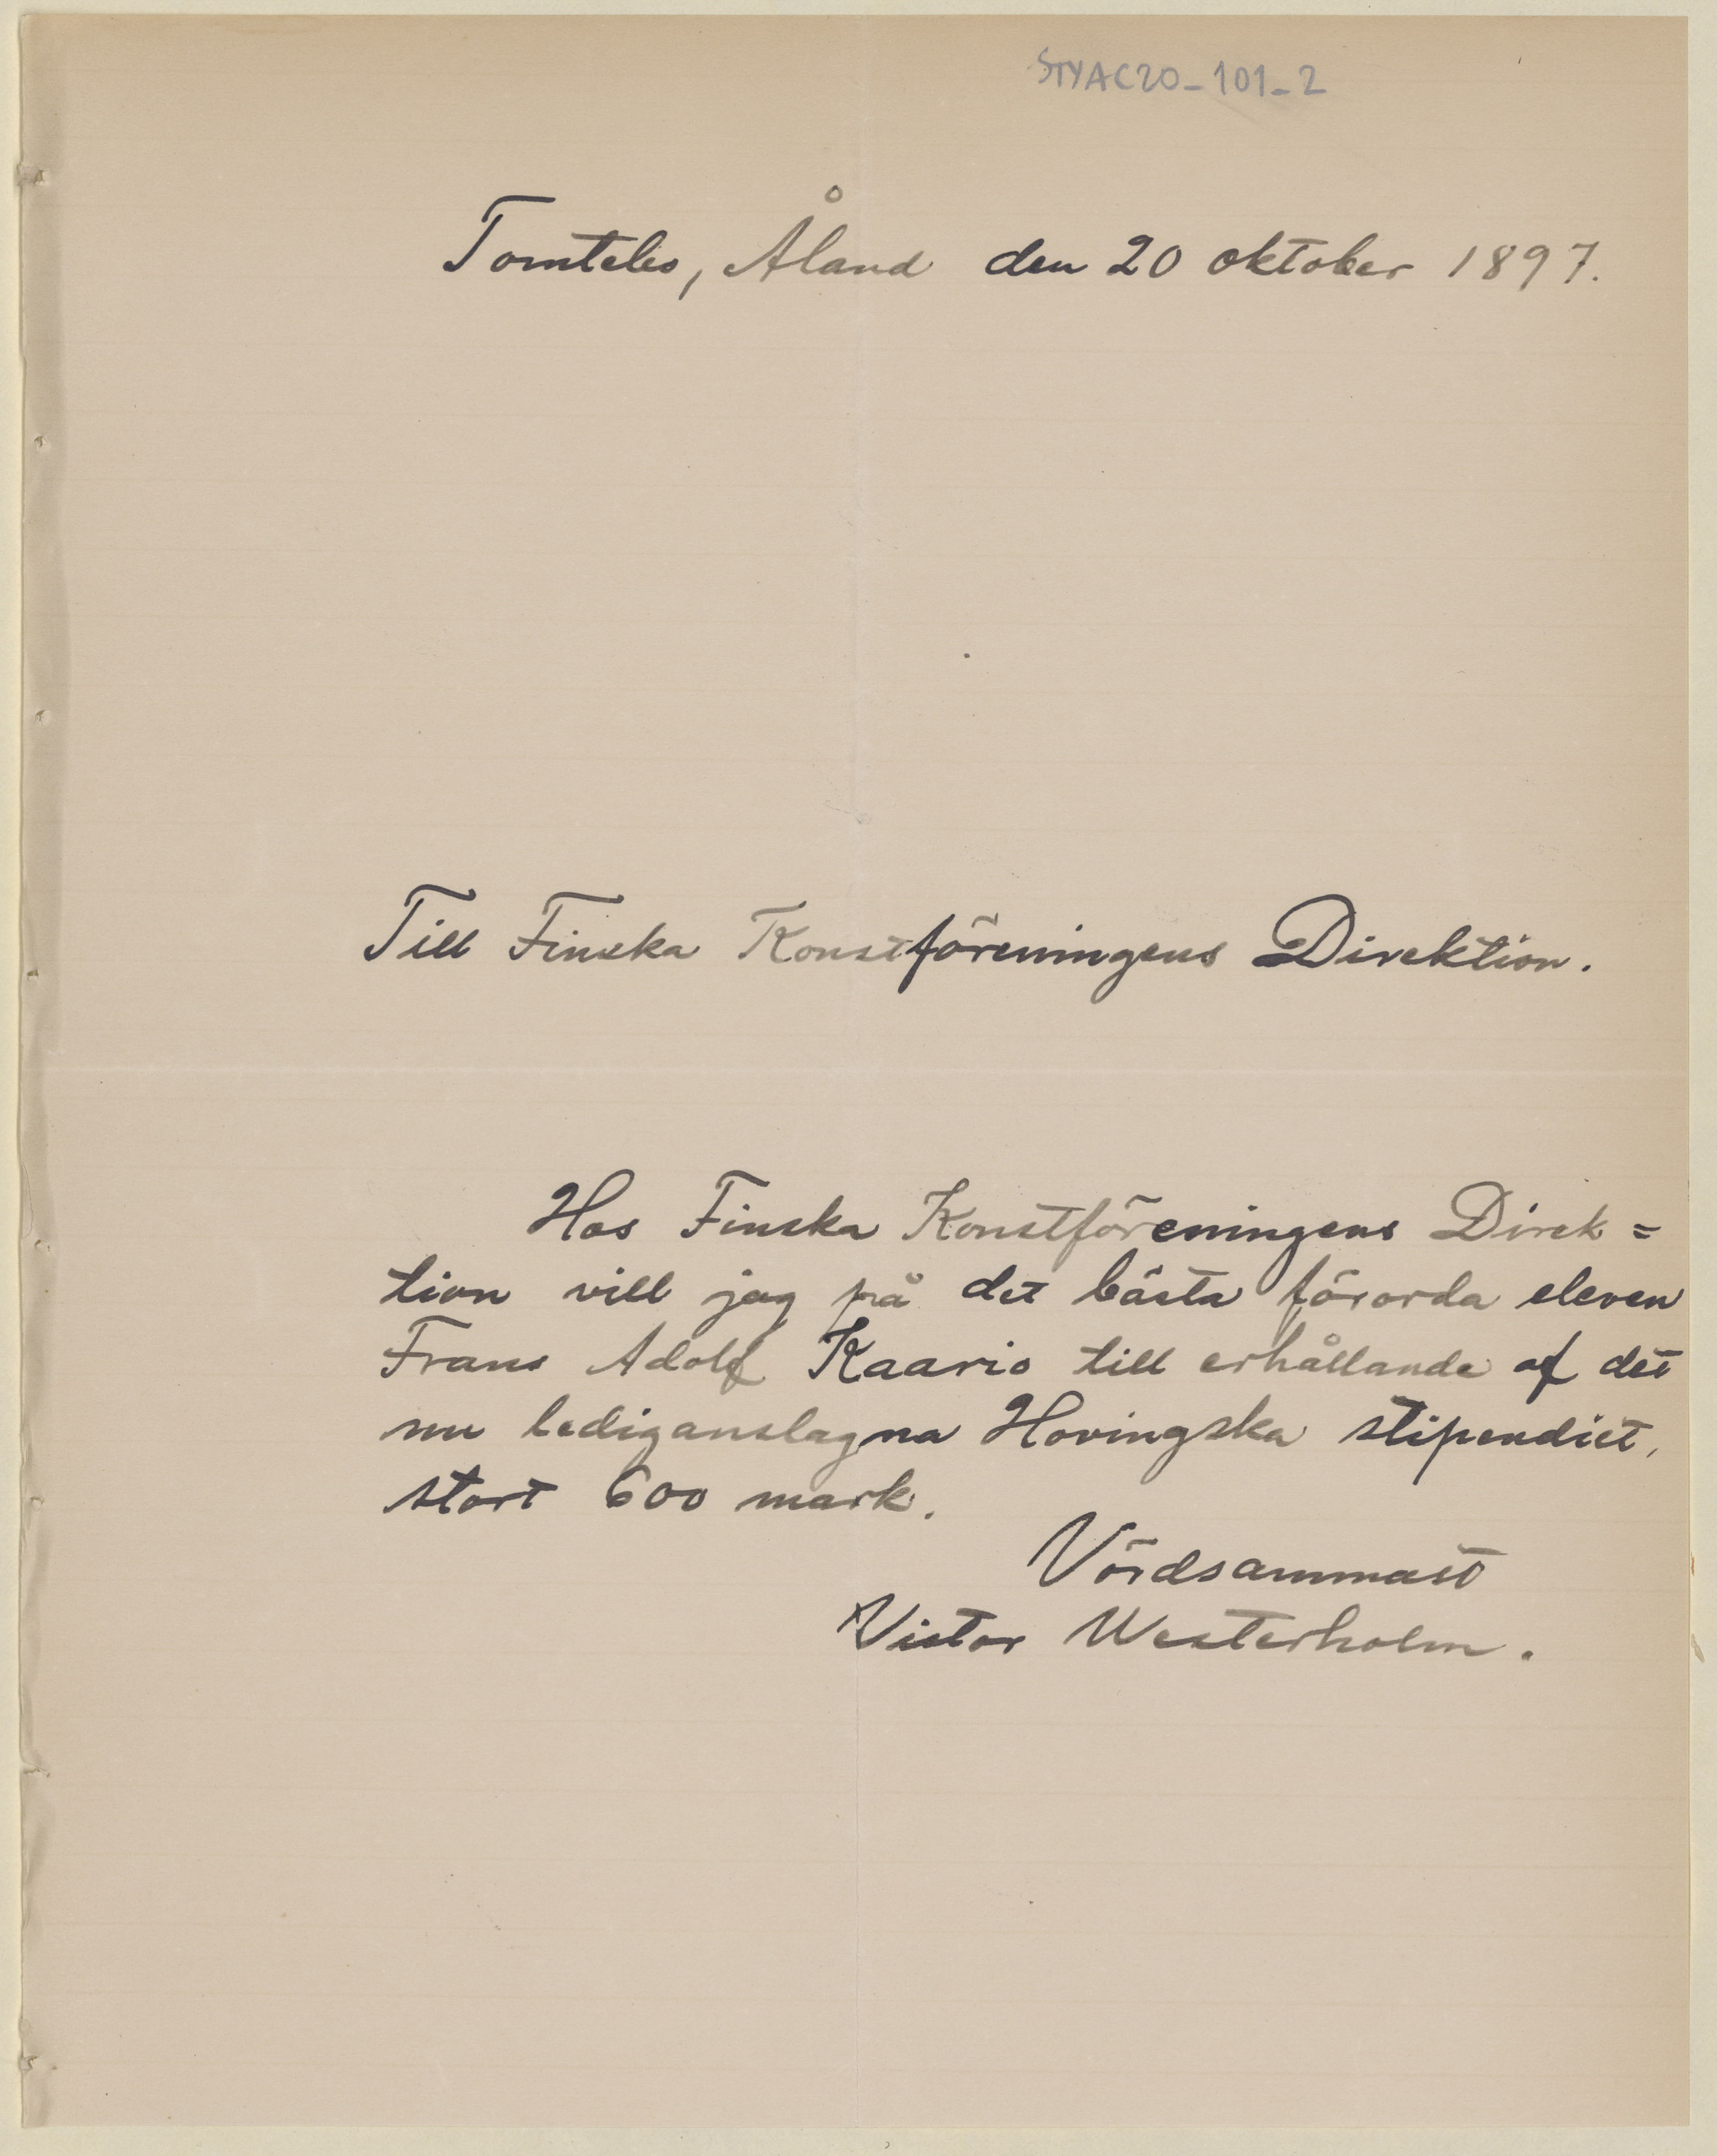 STYAC20-101-2
Tomtebo, Åland den 20 oktober 1897.
Till Finska Konstföreningens Direktion.
Hos Finska Konstföreningens Direk=
tion vill jag på det bästa förorda eleven
Frans Adolf Kaario till erhållande af det
nu lediganslagna Hovingska stipendiet,
stort 600 mark.
Vördsammast
Victor Westerholm.